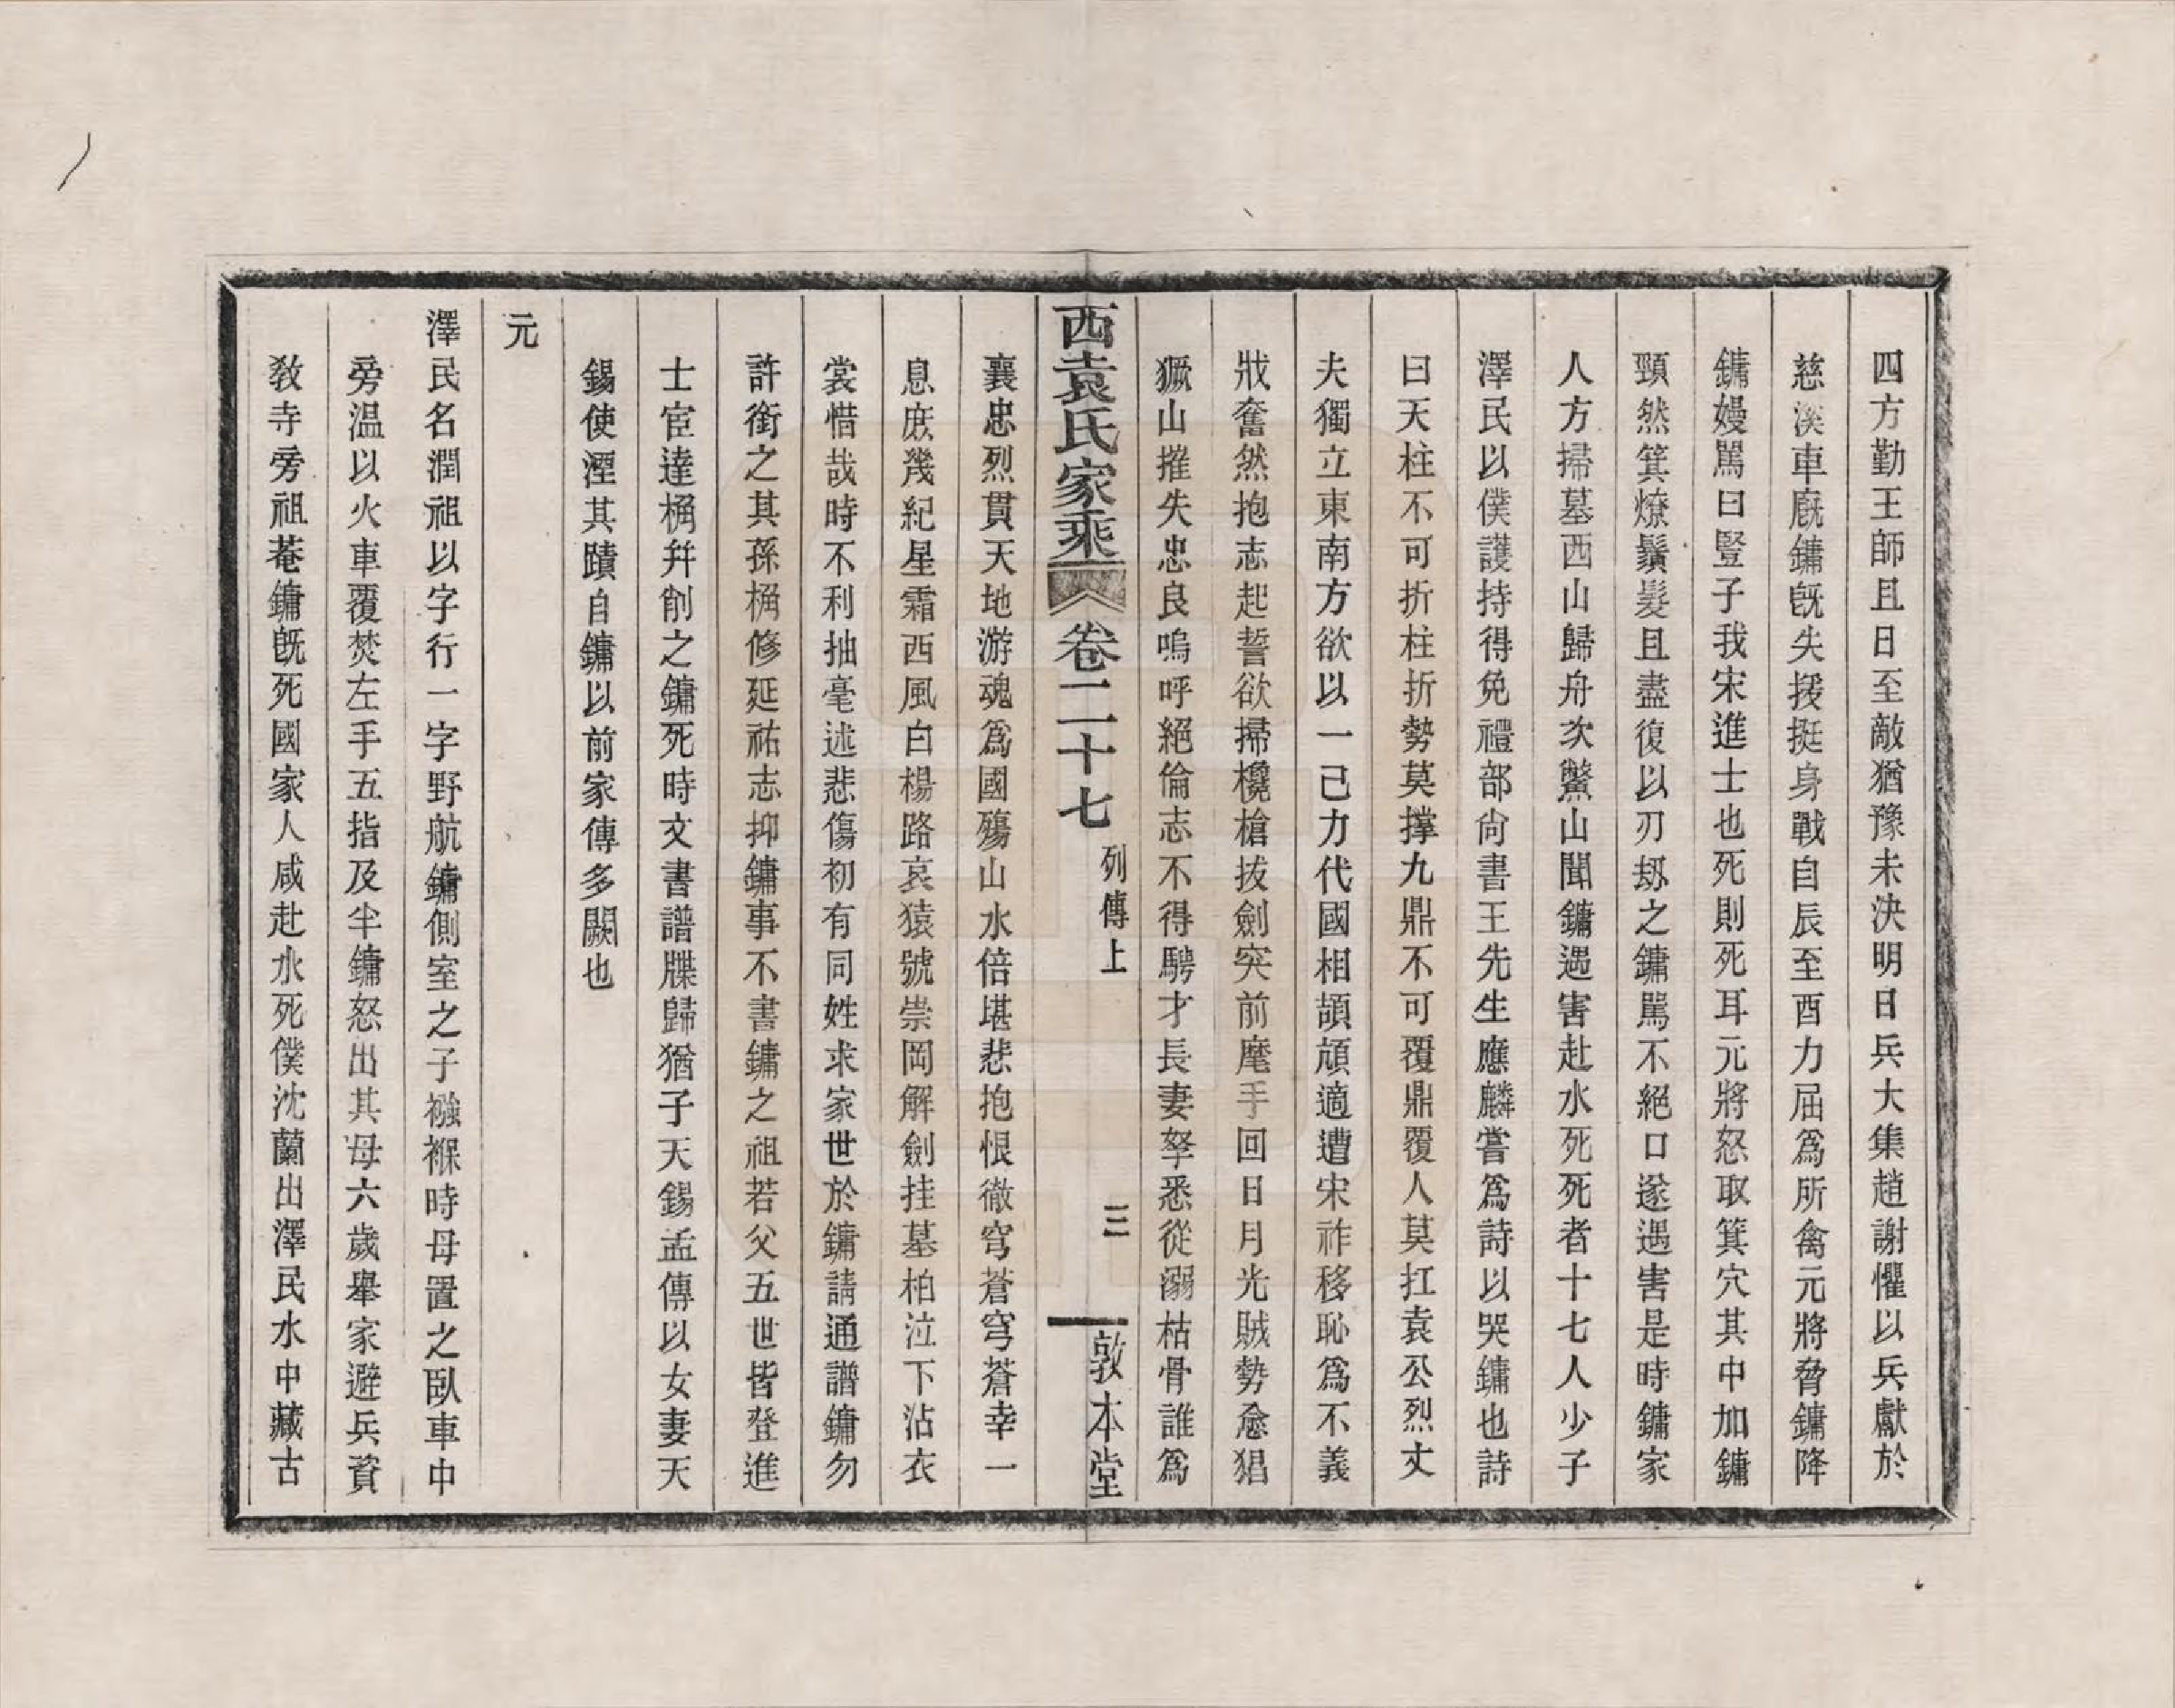 四方勤王師且日至敵猶豫未決明日兵大集趙謝懼以兵獻於
慈溪車廐鏞旣失援挺身戰自辰至酉力屈爲所禽元將脅鏞降
鏞嫚罵曰豎子我宋進士也死則死耳元將怒取箕穴其中加鏞
頸然箕燎鬚髮且盡復以刃剔之鏞罵不絕口遂遇害是時鏞家
人方掃墓西山歸舟次鮆山聞鏞遇害赴水死死者十七人少子
澤民以僕護持得免禮部尙書王先生應麟嘗爲詩以哭鏞也詩
曰天柱不可折柱折勢莫撑九鼎不可覆鼎覆人莫扛袁公烈丈
夫獨立東南方欲以一己力代國相頡頏適遭宋祚移恥爲不義
戕奮然抱志起誓欲掃欃槍拔劍突前麾手回日月光賊勢愈猖
獗山摧失忠良嗚呼絕倫志不得騁才長妻孥悉從溺枯骨誰爲
襄忠烈貫天地游魂爲國殤山水倍堪悲抱恨徹穹蒼穹蒼幸一
西袁氏家乘
卷二十七
列傳上
三
敦本堂
息庶幾紀星霜西風白楊路哀猿號崇岡解劍挂墓柏泣下沾衣
裳惜哉時不利抽毫述悲傷初有同姓求家世於鏞請通譜鏞勿
許銜之其孫桷修延祐志抑鏞事不書鏞之祖若父五世皆登進
士宦達桷幷削之鏞死時文書譜牒歸猶子天錫孟傳以女妻天
錫使湮其蹟自鏞以前家傳多闕也
元
澤民名潤祖以字行一字野航鏞側室之子襁褓時母置之臥車中
旁溫以火車覆焚左手五指及半鏞怒出其母六歲舉家避兵資
敎寺旁祖菴鏞旣死國家人咸赴水死僕沈蘭出澤民水中藏古